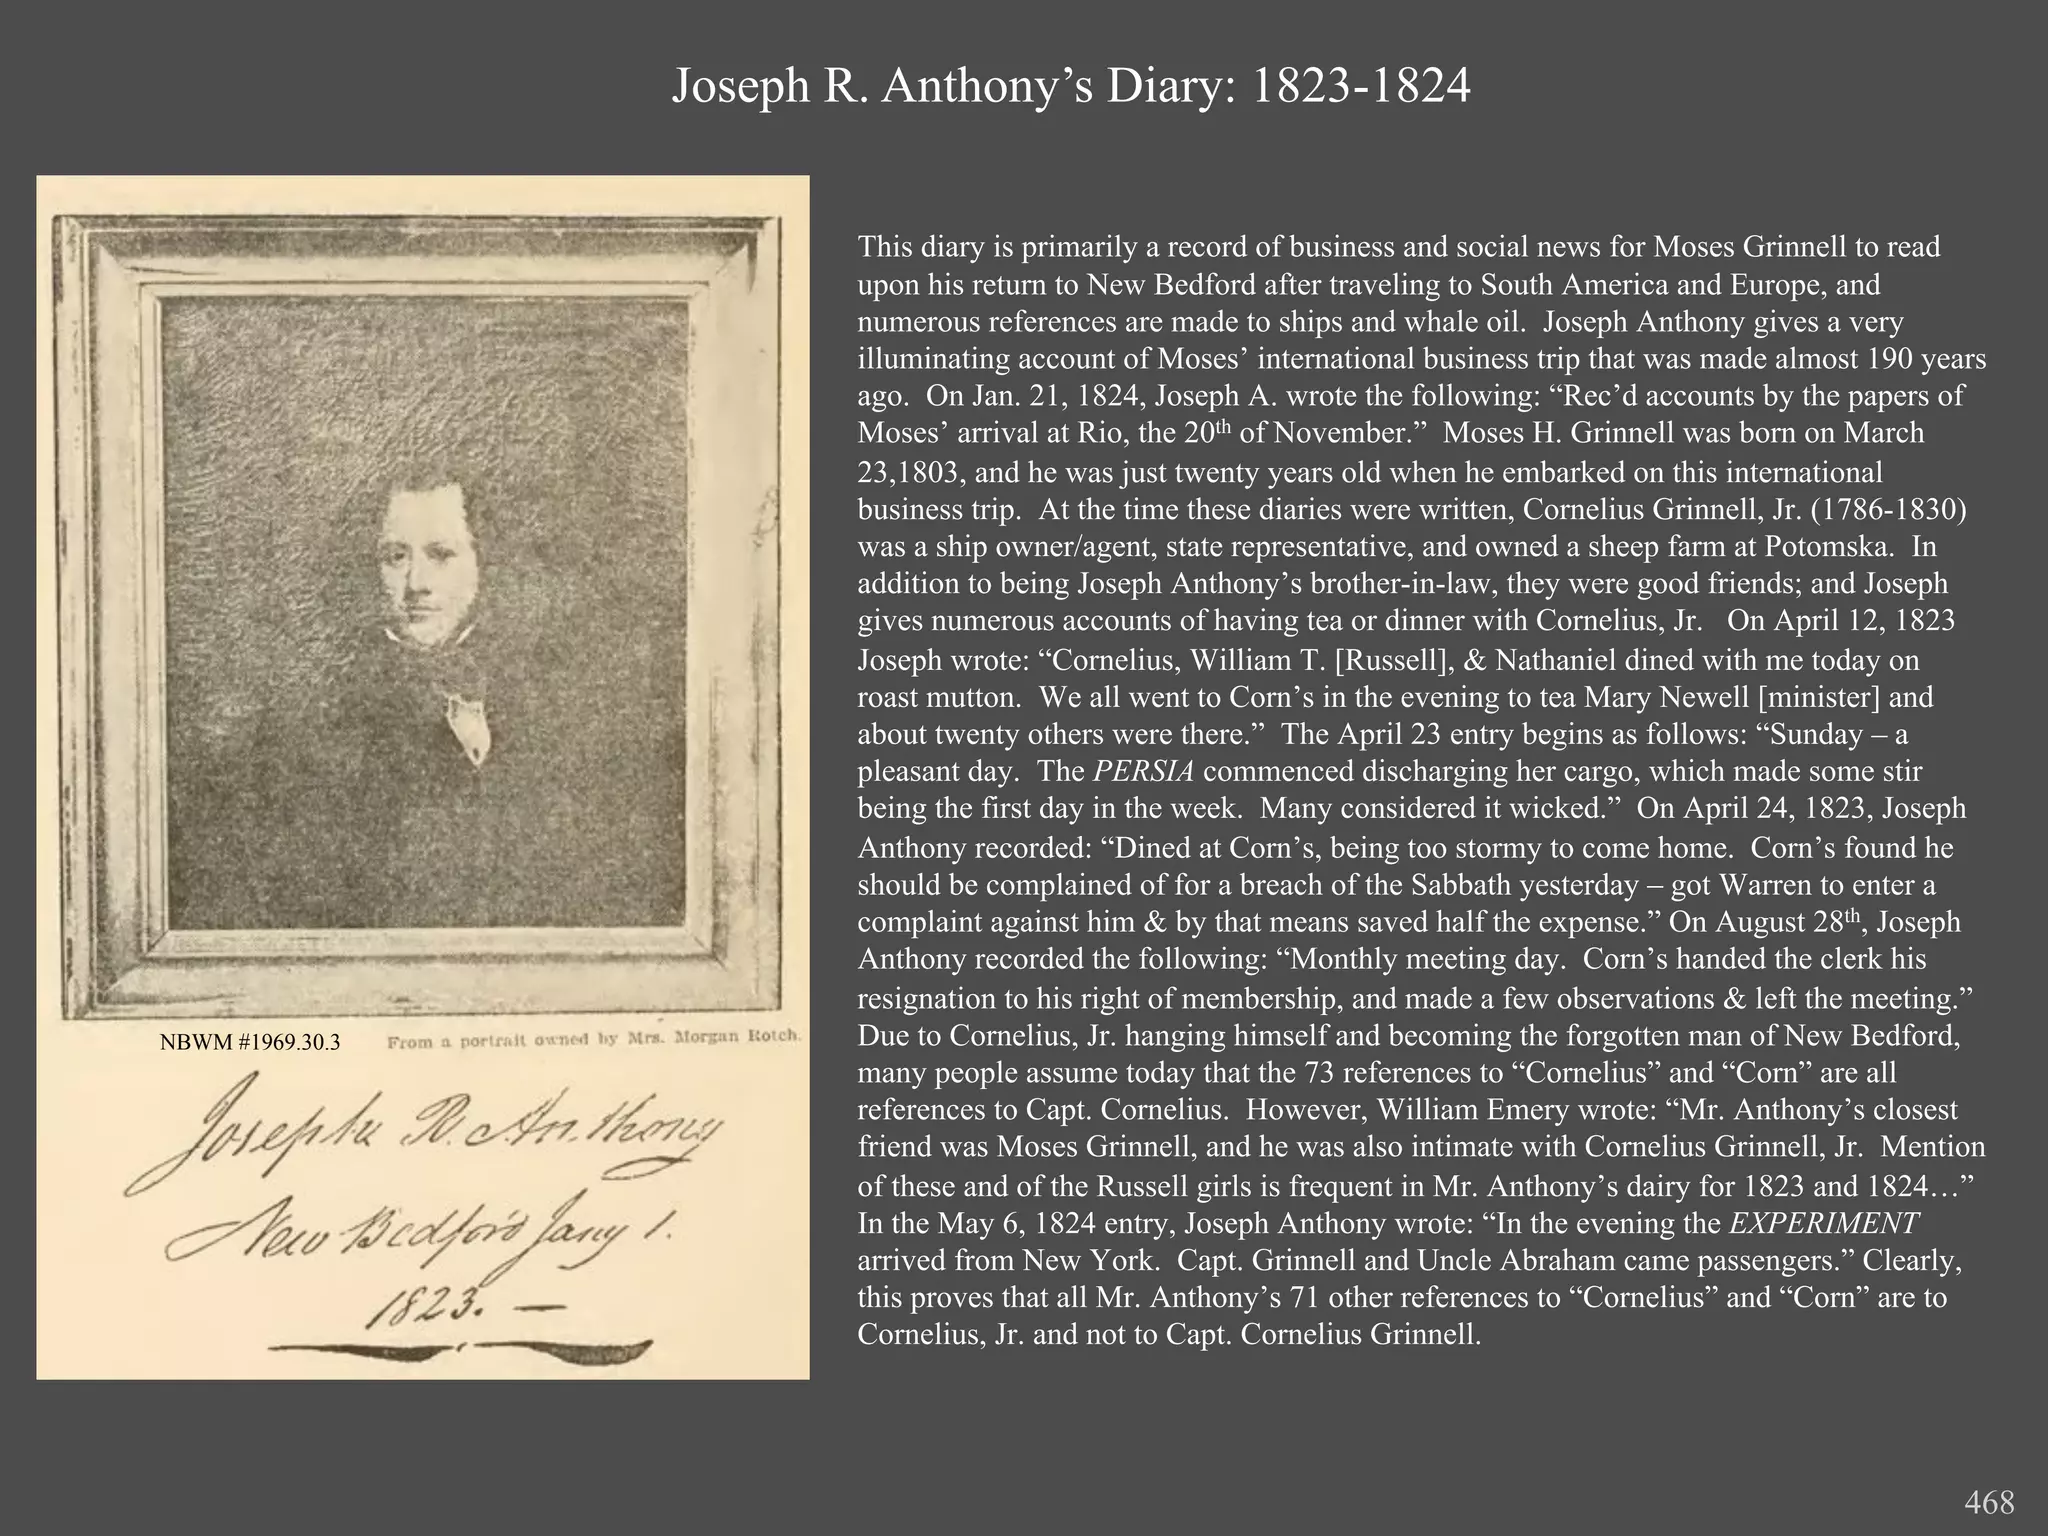 Joseph R. Anthony’s Diary: 1823-1824
This diary is primarily a record of business and social news for Moses Grinnell to read
upon his return to New Bedford after traveling to South America and Europe, and
numerous references are made to ships and whale oil.  Joseph Anthony gives a very
illuminating account of Moses’ international business trip that was made almost 190 years
ago.  On Jan. 21, 1824, Joseph A. wrote the following: “Rec’d accounts by the papers of
Moses’ arrival at Rio, the 20th of November.”  Moses H. Grinnell was born on March
23,1803, and he was just twenty years old when he embarked on this international
business trip.  At the time these diaries were written, Cornelius Grinnell, Jr. (1786-1830)
was a ship owner/agent, state representative, and owned a sheep farm at Potomska.  In
addition to being Joseph Anthony’s brother-in-law, they were good friends; and Joseph
gives numerous accounts of having tea or dinner with Cornelius, Jr.   On April 12, 1823
Joseph wrote: “Cornelius, William T. [Russell], & Nathaniel dined with me today on
roast mutton.  We all went to Corn’s in the evening to tea Mary Newell [minister] and
about twenty others were there.”  The April 23 entry begins as follows: “Sunday – a
pleasant day.  The PERSIA commenced discharging her cargo, which made some stir
being the first day in the week.  Many considered it wicked.”  On April 24, 1823, Joseph
Anthony recorded: “Dined at Corn’s, being too stormy to come home.  Corn’s found he
should be complained of for a breach of the Sabbath yesterday – got Warren to enter a
complaint against him & by that means saved half the expense.” On August 28th, Joseph
Anthony recorded the following: “Monthly meeting day.  Corn’s handed the clerk his
resignation to his right of membership, and made a few observations & left the meeting.”
Due to Cornelius, Jr. hanging himself and becoming the forgotten man of New Bedford,
many people assume today that the 73 references to “Cornelius” and “Corn” are all
references to Capt. Cornelius.  However, William Emery wrote: “Mr. Anthony’s closest
friend was Moses Grinnell, and he was also intimate with Cornelius Grinnell, Jr.  Mention
of these and of the Russell girls is frequent in Mr. Anthony’s dairy for 1823 and 1824…”
In the May 6, 1824 entry, Joseph Anthony wrote: “In the evening the EXPERIMENT
arrived from New York.  Capt. Grinnell and Uncle Abraham came passengers.” Clearly,
this proves that all Mr. Anthony’s 71 other references to “Cornelius” and “Corn” are to
Cornelius, Jr. and not to Capt. Cornelius Grinnell.
NBWM #1969.30.3
From a portrait owned by Mrs. Morgan Rotch.
Joseph R. Anthony
New Bedford Jany 1.
1823. —
468